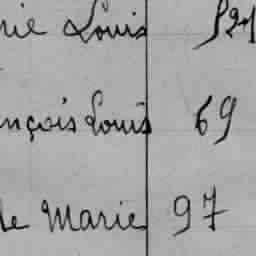 rie Louis 521
nçois Louis 69
le Marie 97